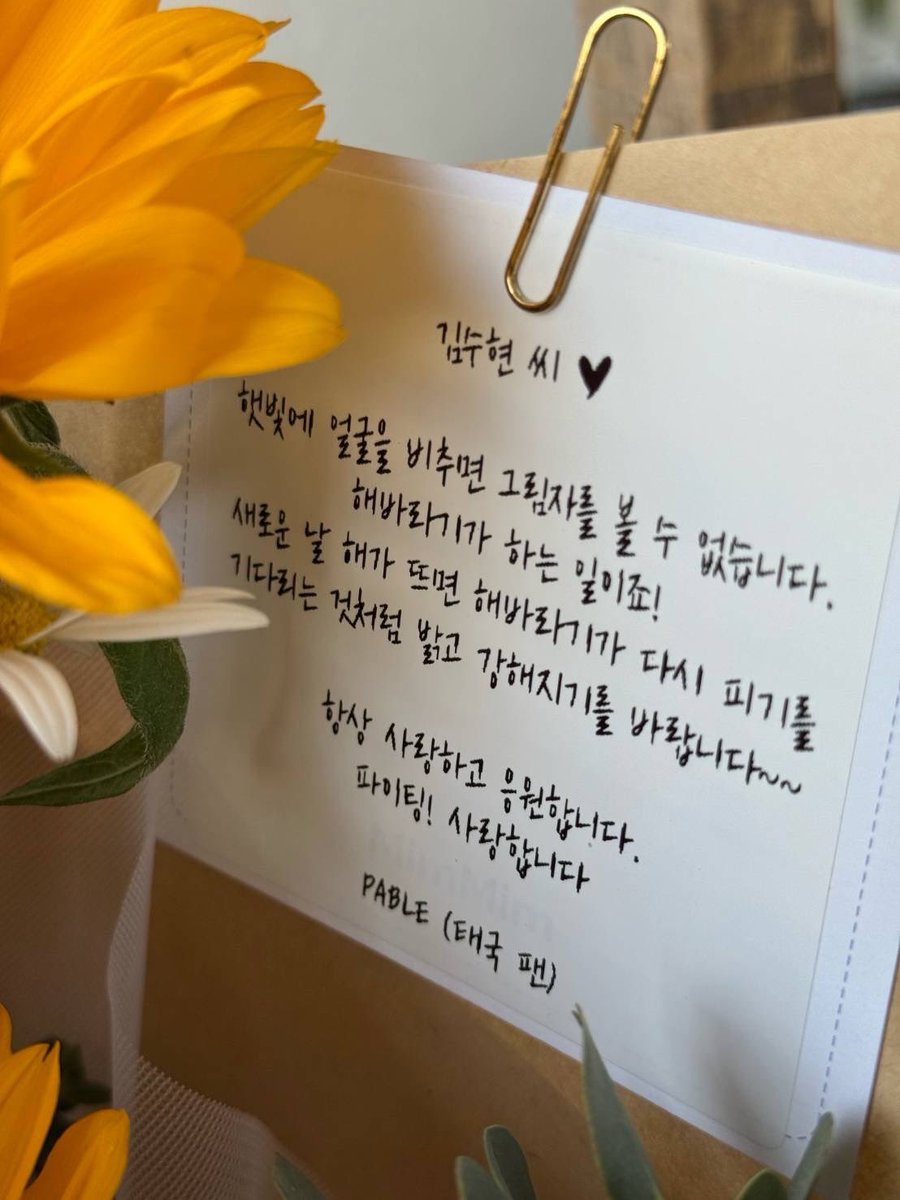 김수현 씨 ♥
햇빛에 얼굴을 비추면 그림자를 볼 수 없습니다.
해바라기가 하는 일이죠!
새로운 날 해가 뜨면 해바라기가 다시 피기를
기다리는 것처럼 밝고 강해지기를 바랍니다~~
항상 사랑하고 응원합니다.
파이팅! 사랑합니다
PABLE (태국 팬)